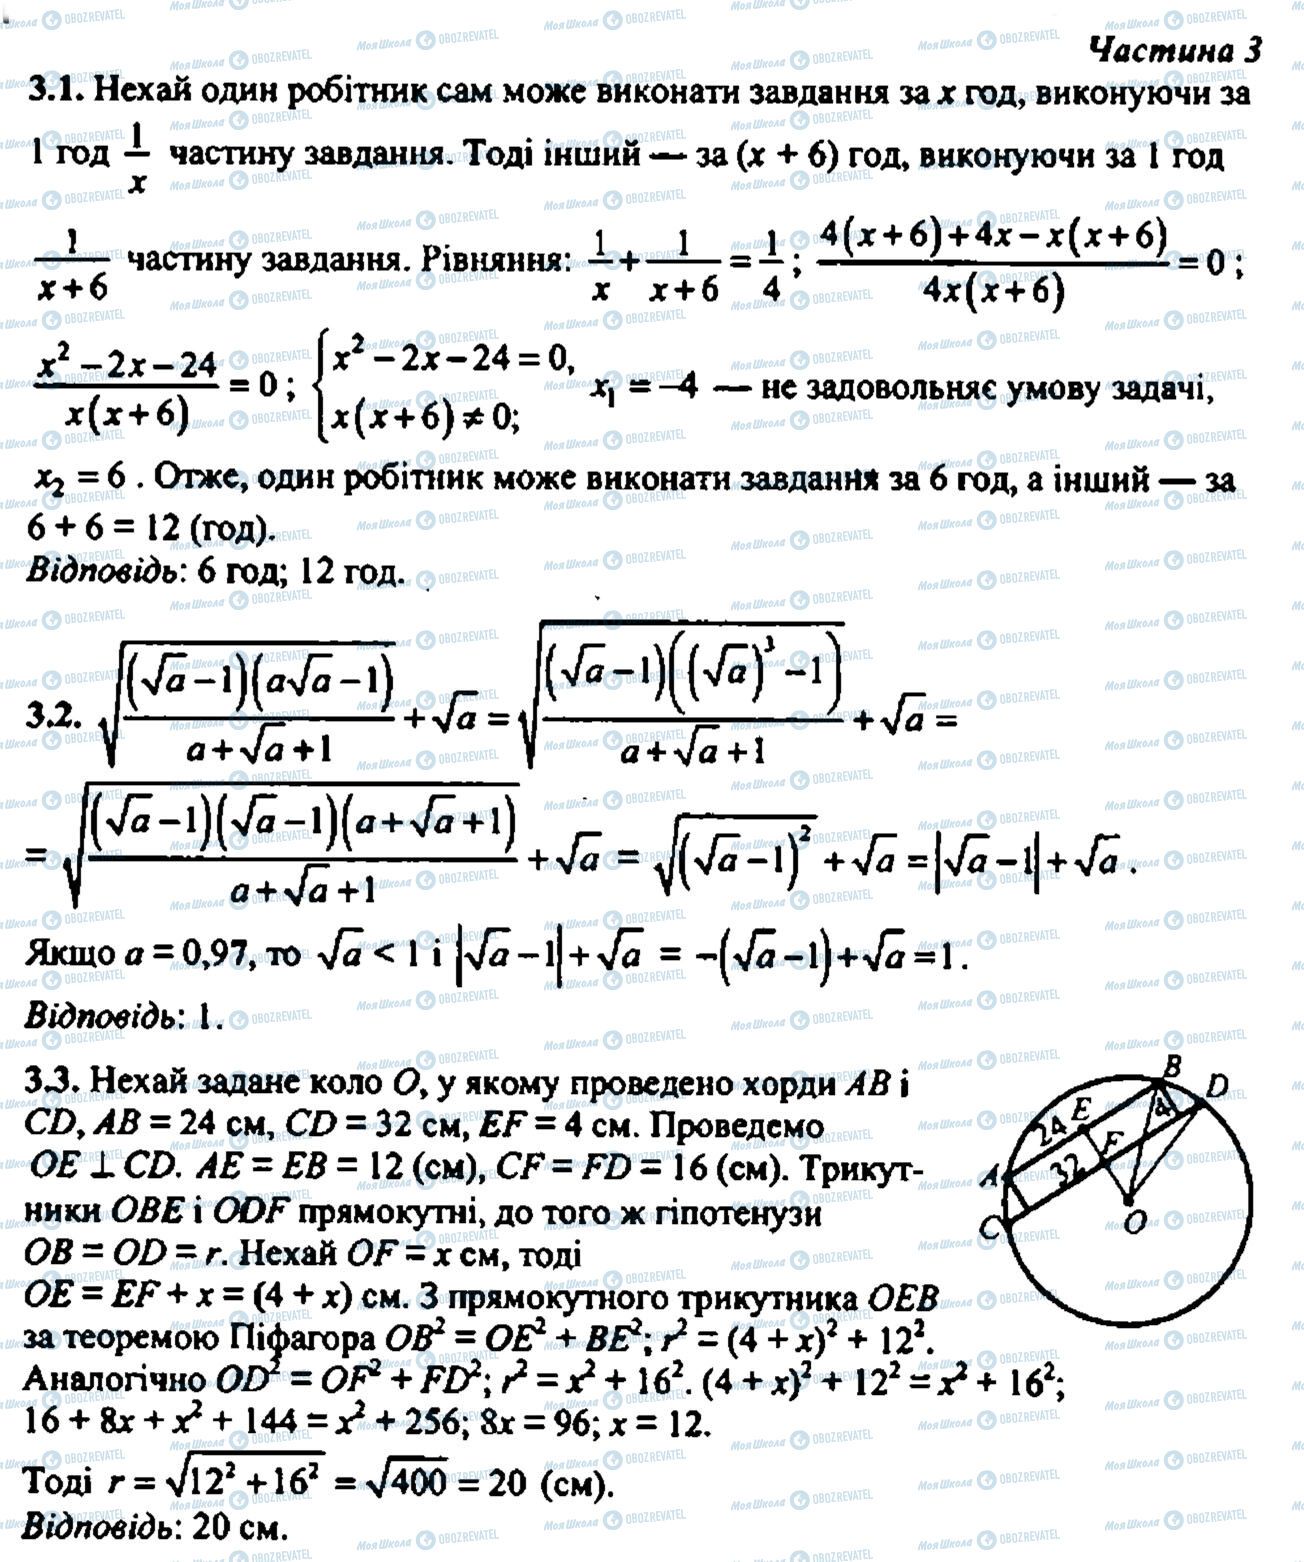 Частина 3
3.1. Нехай один робітник сам може виконати завдання за x год, виконуючи за
1 год 1/x частину завдання. Тоді інший — за (x + 6) год, виконуючи за 1 год
1/(x+6) частину завдання. Рівняння: 1/x + 1/(x+6) = 1/4; (4(x+6)+4x−x(x+6))/(4x(x+6)) = 0;
(x²−2x−24)/(x(x+6)) = 0; {x²−2x−24=0, x(x+6)≠0; x₁ = −4 — не задовольняє умову задачі,
x₂ = 6 . Отже, один робітник може виконати завдання за 6 год, а інший — за
6 + 6 = 12 (год).
Відповідь: 6 год; 12 год.
3.2. √((√a−1)(a√a−1)/(a+√a+1)) + √a = √((√a−1)((√a)³−1)/(a+√a+1)) + √a =
= √((√a−1)(√a−1)(a+√a+1)/(a+√a+1)) + √a = √((√a−1)²) + √a = |√a−1| + √a .
Якщо a = 0,97, то √a < 1 і |√a−1| + √a = −(√a−1)+√a = 1.
Відповідь: 1.
3.3. Нехай задане коло O, у якому проведено хорди AB і
CD, AB = 24 см, CD = 32 см, EF = 4 см. Проведемо
OE ⊥ CD. AE = EB = 12 (см), CF = FD = 16 (см). Трикут-
ники OBE і ODF прямокутні, до того ж гіпотенузи
OB = OD = r. Нехай OF = x см, тоді
OE = EF + x = (4 + x) см. З прямокутного трикутника OEB
за теоремою Піфагора OB² = OE² + BE²; r² = (4 + x)² + 12².
Аналогічно OD² = OF² + FD²; r² = x² + 16². (4 + x)² + 12² = x² + 16²;
16 + 8x + x² + 144 = x² + 256; 8x = 96; x = 12.
Тоді r = √(12²+16²) = √400 = 20 (см).
Відповідь: 20 см.
B
D
E
24
4
F
A
32
C
O
МояШкола OBOZREVATEL